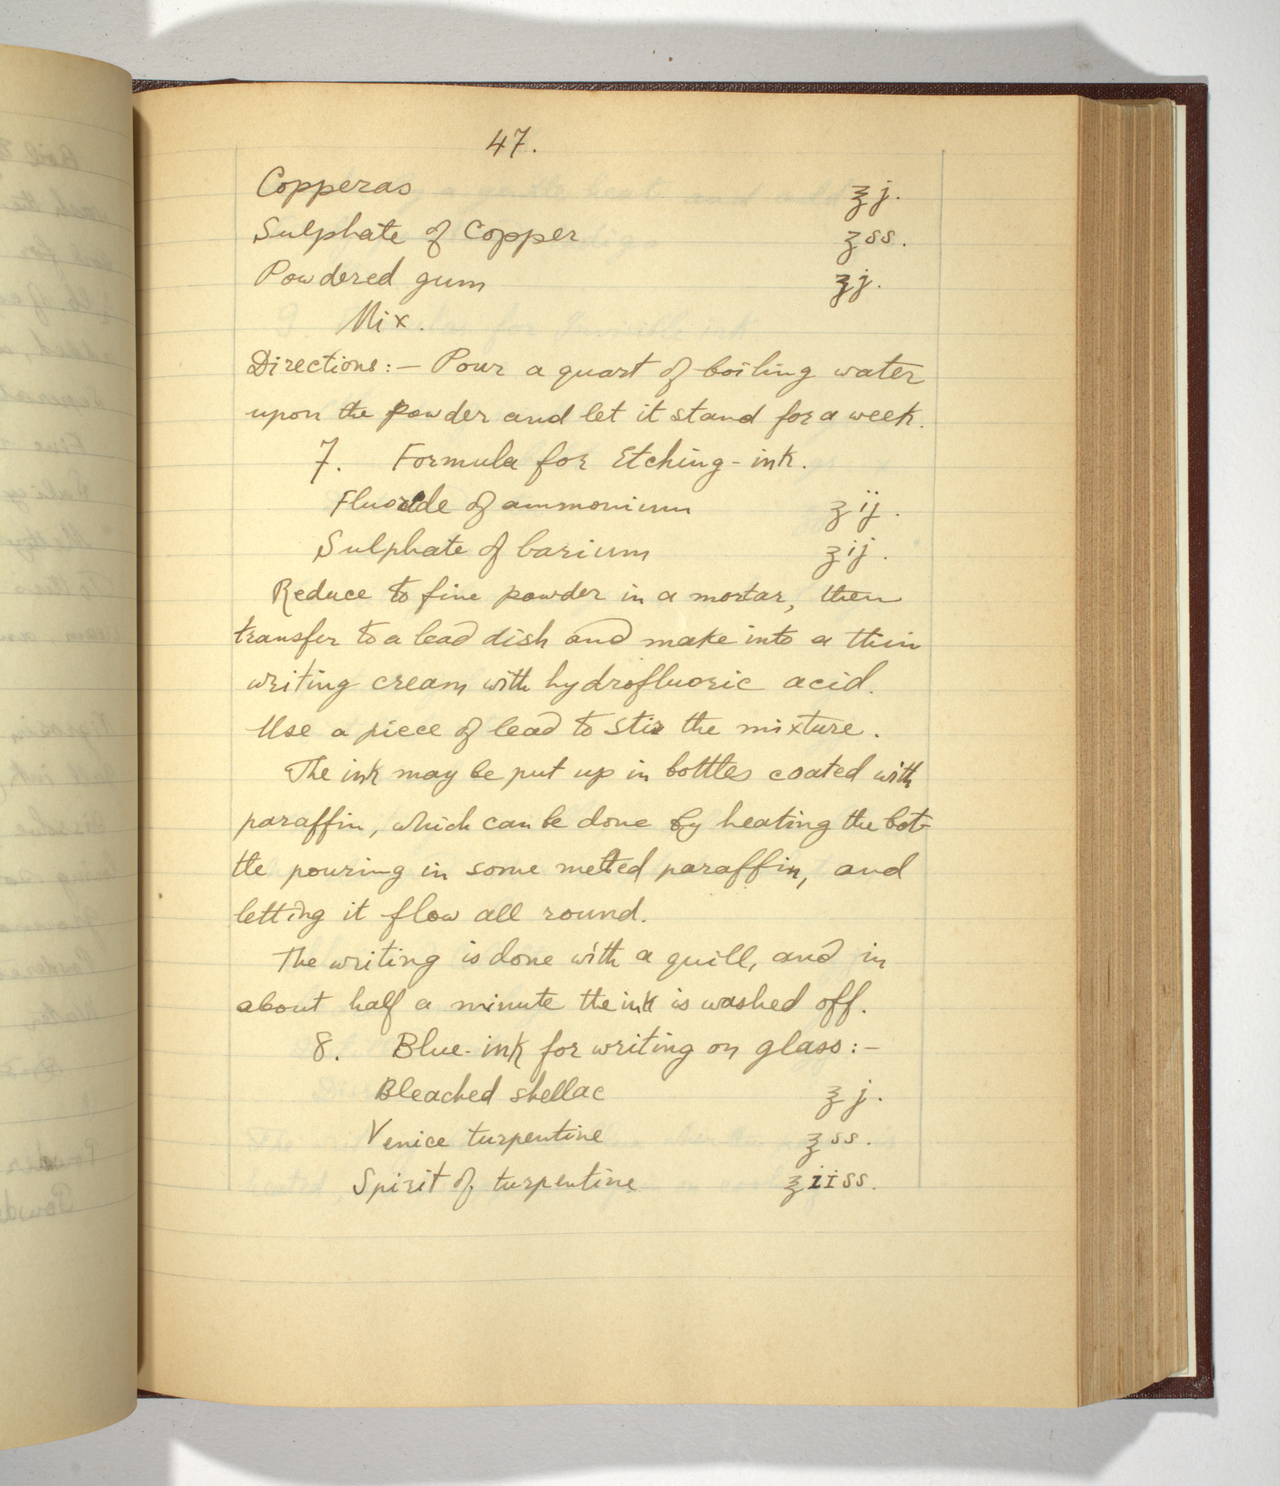 47.
Copperas ℥j.
Sulphate of Copper ʒss.
Powdered gum ℥j.
Mix.
Directions:— Pour a quart of boiling water
upon the powder and let it stand for a week.
7. Formula for Etching-ink.
Fluoride of ammonium ʒij.
Sulphate of barium ʒij.
Reduce to fine powder in a mortar, then
transfer to a lead dish and make into a thin
writing cream with hydrofluoric acid.
Use a piece of lead to stir the mixture.
The ink may be put up in bottles coated with
paraffin, which can be done by heating the bot-
tle pouring in some melted paraffin, and
letting it flow all round.
The writing is done with a quill, and in
about half a minute the ink is washed off.
8. Blue ink for writing on glass:—
Bleached shellac ℥j.
Venice turpentine ℥ss.
Spirit of turpentine ℥iiss.